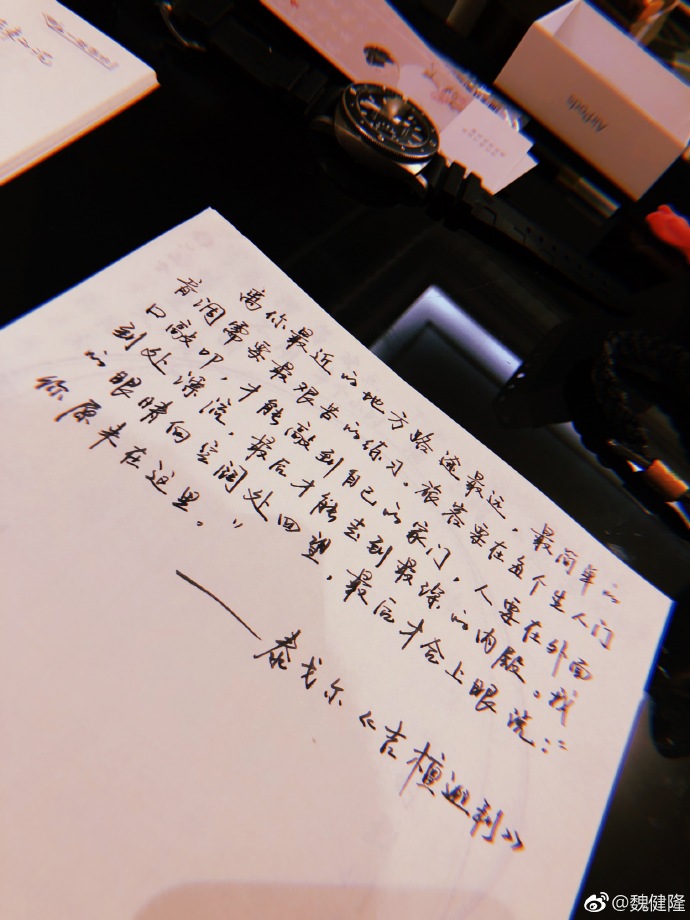 AirPods
离你最近的地方路途最远，最简单的
音调需要最艰苦的练习。旅客要在每个生人门
口敲叩，才能敲到自己的家门，人要在外面
到处漂流，最后才能走到最深的内殿。我
的眼睛向空阔处四望，最后才合上眼说：“
你原来在这里。”
——泰戈尔《吉檀迦利》
@魏健隆